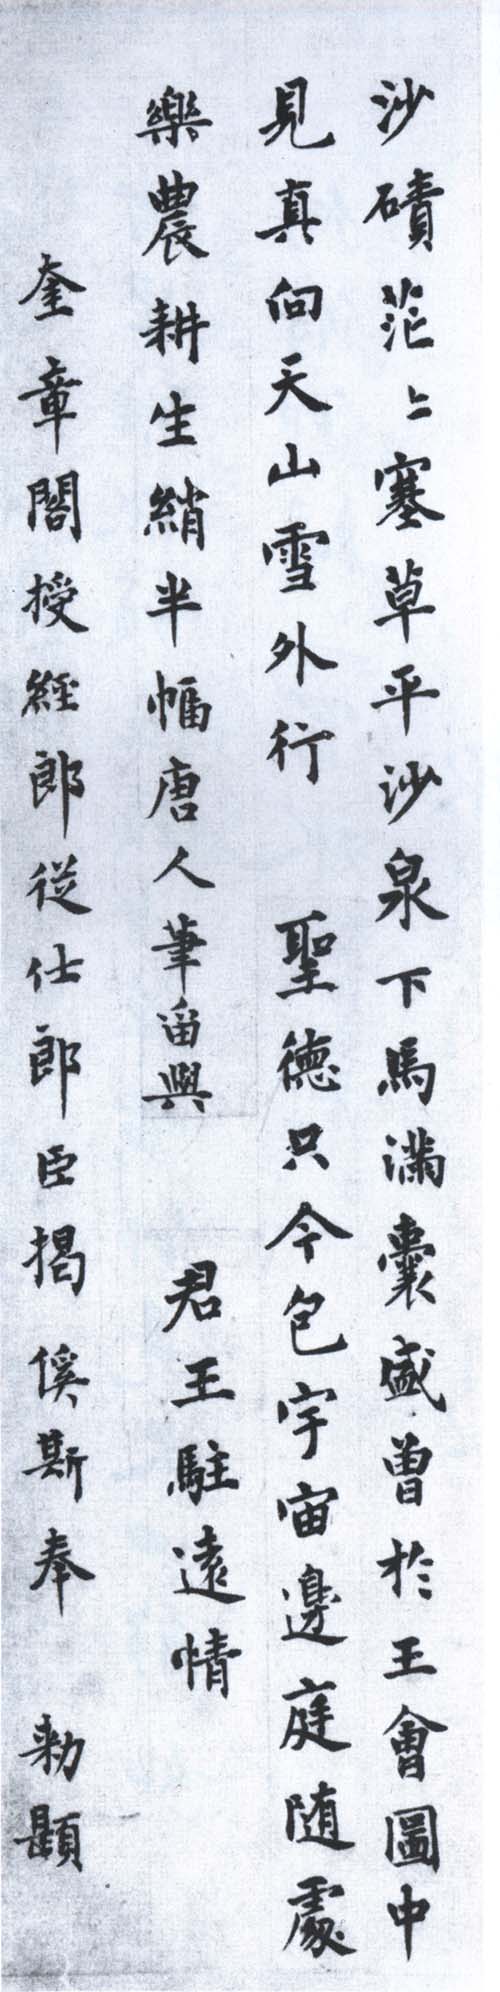 沙磧茫〻塞草平沙泉下馬滿囊盛曾於王會圖中
見真向天山雪外行 聖德只今包宇宙邊庭随處
樂農耕生綃半幅唐人筆畱與 君王駐遠情
奎章閣授經郎從仕郎臣揭傒斯奉 勑題